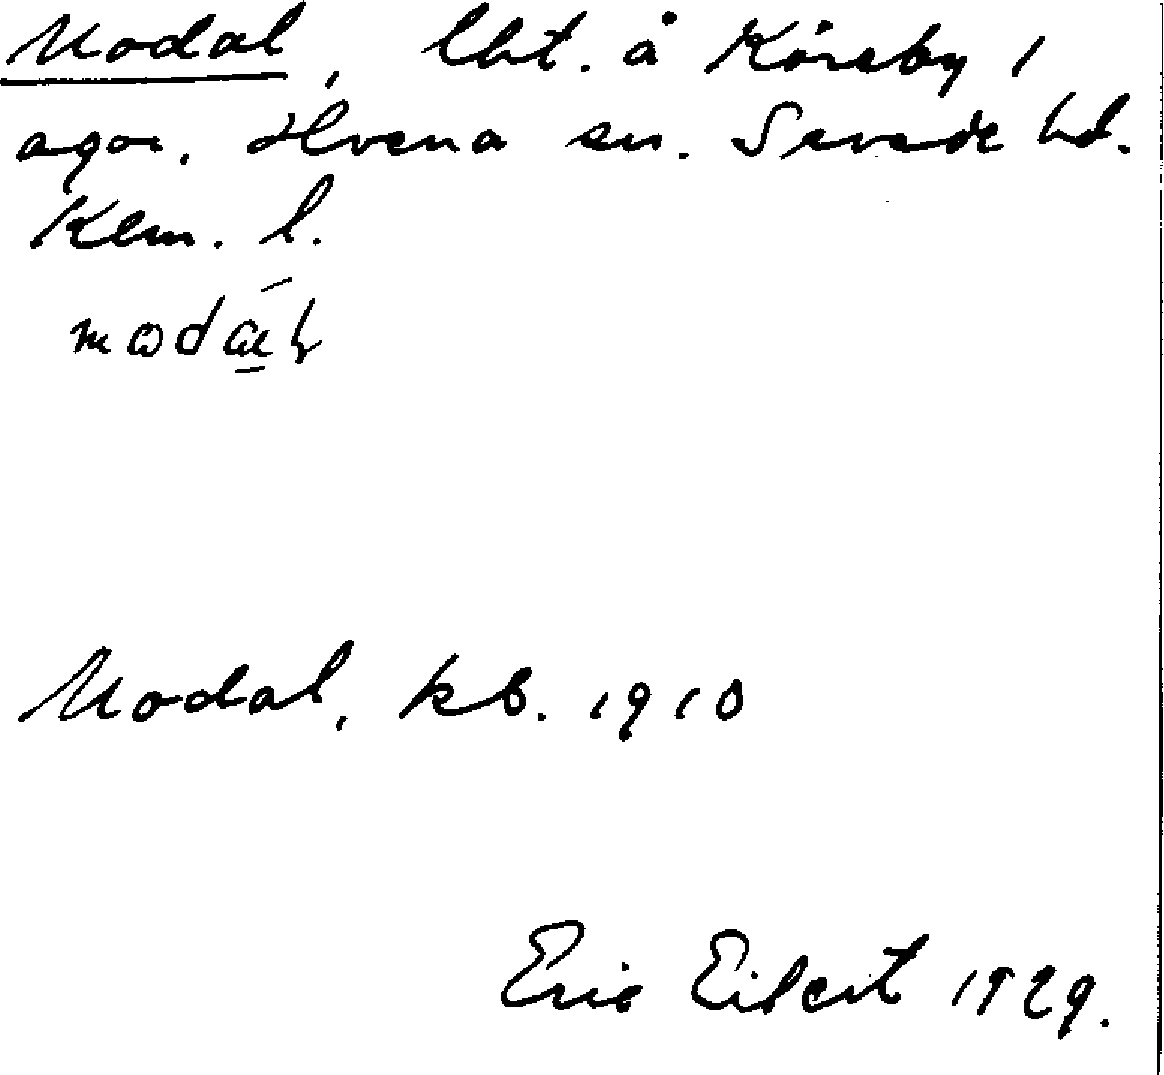 Modal, lht. å Kåreby 1
ägor. Hvena sn. Sevede hd.
Klm. l.
Modal, kb. 1910
Eric Eilert 1929.